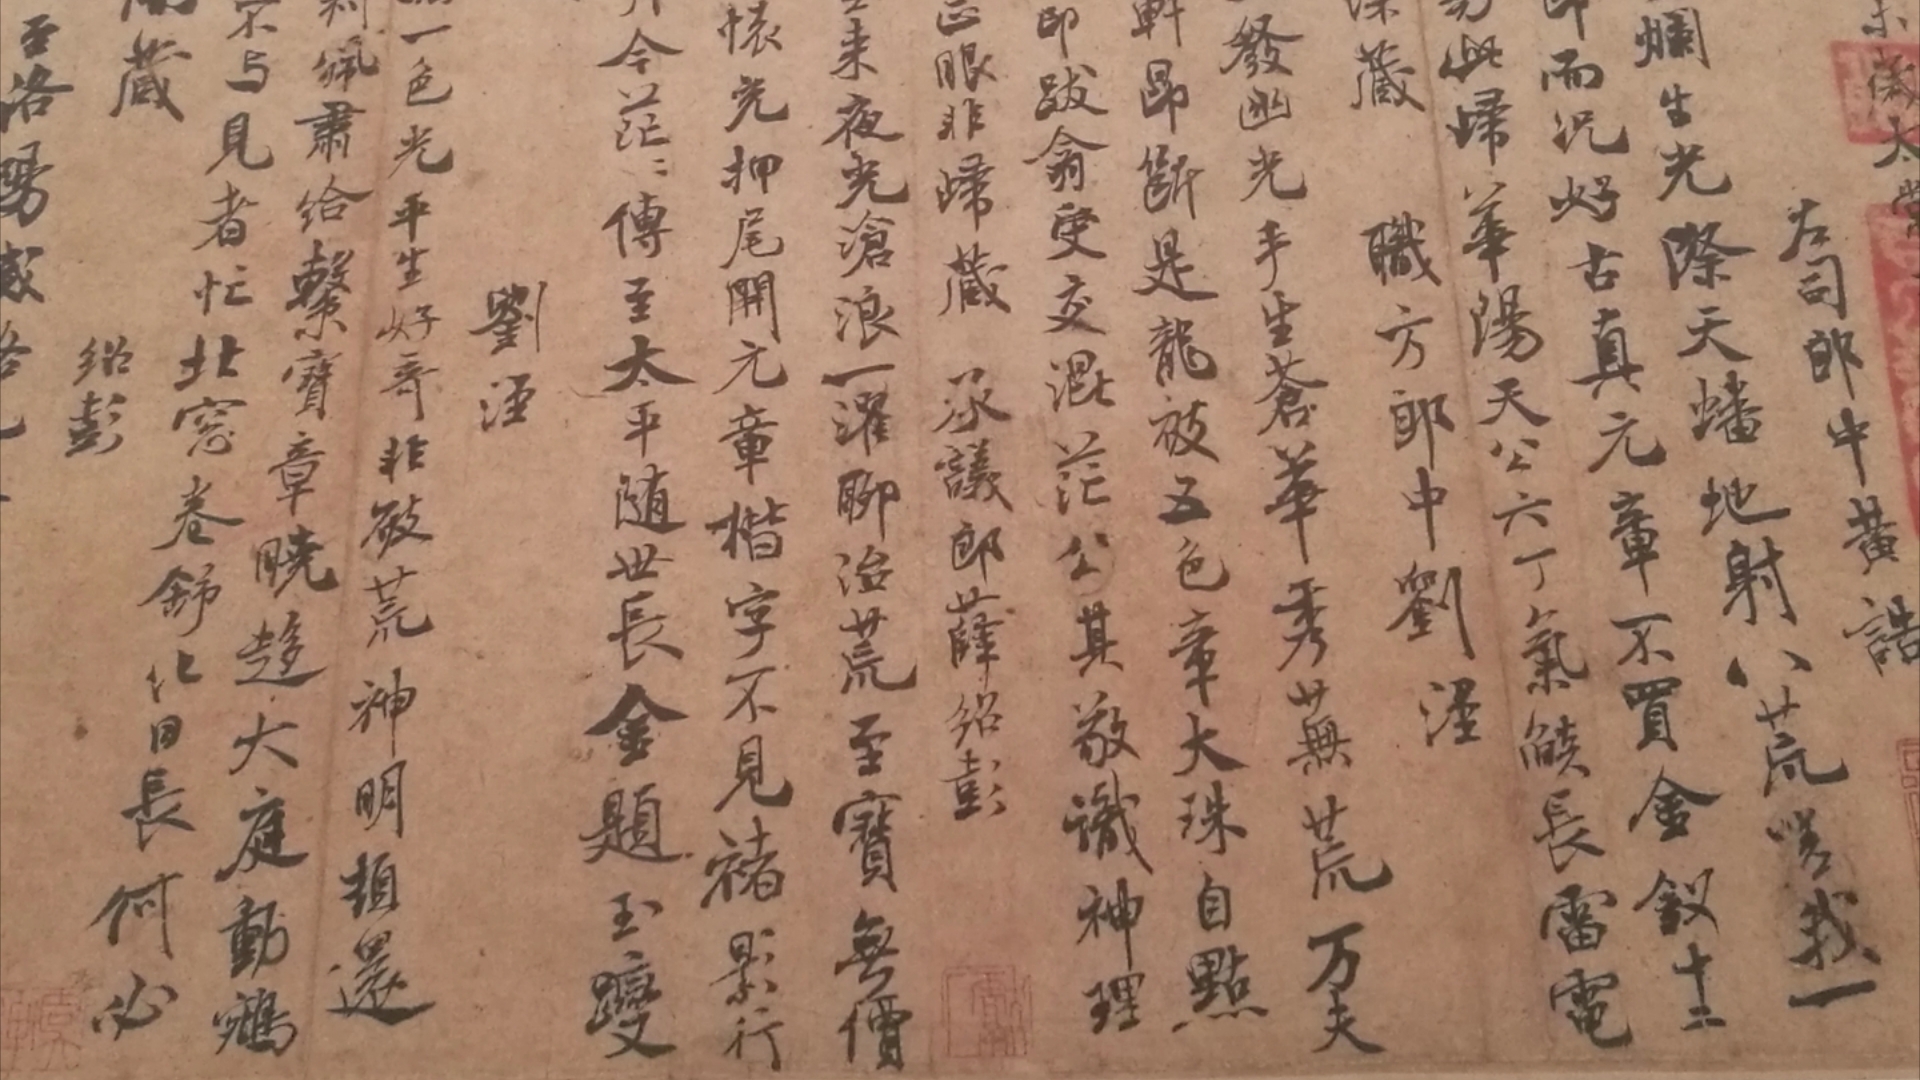 太常
左司郎中黄誥
爛生光際天蟠地射八荒嗟我一
即而況好古真元章不買金釵十二
易此歸華陽天公六丁氣燄長雷電
深藏　職方郎中劉涇
發幽光半生蒼華秀蕪荒万夫
軒昂斷是龍被五色章大珠自點
即跋翁更交混茫公其敬識神理
正眼非歸藏　承議郎薛紹彭
來夜光滄浪一濯聊治荒至寶無價
懷充押尾開元章楷字不見褚影行
今茫〻傳至太平隨世長金題玉躞
劉涇
一色光平生好奇非破荒神明頓還
佩肅給繫寶章曉趍大庭動鵷
不与見者忙北窓卷舒化日長何必
藏　紹彭
至洛陽